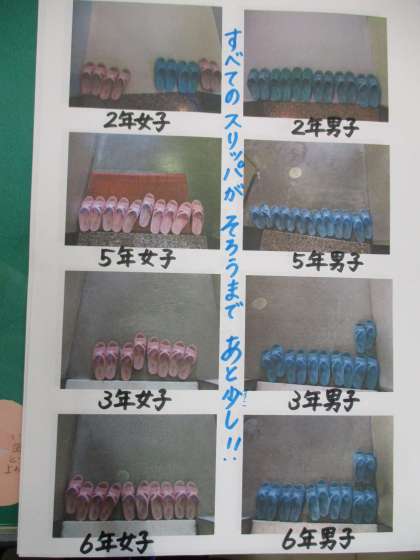 すべての スリッパが そろうまで あと少し!!
2年女子
2年男子
5年女子
5年男子
3年女子
3年男子
6年女子
6年男子